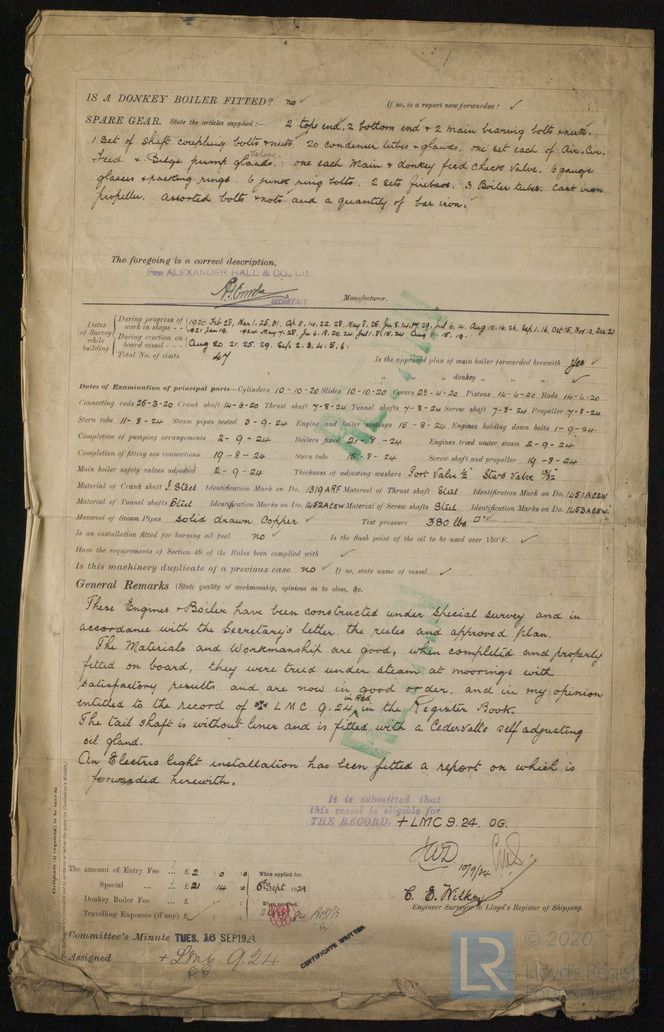 IS A DONKEY BOILER FITTED? no ✓ If so, is a report now forwarded? ✓
SPARE GEAR. State the articles supplied:— 2 top end, 2 bottom end & 2 main bearing bolts & nuts.
1 set of shaft coupling bolts & nuts. 20 condenser tubes & glands, one set each of Air, Cir.
Feed & Bilge pump valves, one each Main & donkey feed check valve. 6 gauge
glasses & packing rings. 6 junk ring bolts. 2 sets firebars. 3 Boiler tubes. Cast iron
propeller. Assorted bolts & nuts and a quantity of bar iron.
The foregoing is a correct description,
For ALEXANDER HALL & CO., Ld.
SECRETARY. Manufacturer.
Dates of Survey while building
During progress of work in shops - - 1920 Feb 28, Mar 1, 25, 31, Ap 8, 14, 22, 28, May 8, 26, Jun 8, 14, 17, 29, Jul 6, 14, Aug 10, 16, 26, Sep 1, 16, Oct 15, Nov 10, Dec 21
1921 Jan 19. 1924 May 7, 28, Jun 6, 18, 20, 24, Jul 1, 8, 15, 24 Aug 11, 15, 19.
During erection on board vessel - - Aug 20, 21, 25, 29, Sep 2, 3, 4, 5, 6.
Total No. of visits 47 Is the approved plan of main boiler forwarded herewith Yes ✓
" " " donkey " " " ✓
Dates of Examination of principal parts—Cylinders 10-10-20 Slides 10-10-20 Covers 28-4-20 Pistons 14-6-20 Rods 14-6-20
Connecting rods 25-3-20 Crank shaft 14-6-20 Thrust shaft 7-8-24 Tunnel shafts 7-8-24 Screw shaft 7-8-24 Propeller 7-8-24
Stern tube 11-8-24 Steam pipes tested 3-9-24 Engine and boiler seatings 15-8-24 Engines holding down bolts 1-9-24
Completion of pumping arrangements 2-9-24 Boilers fixed 21-8-24 Engines tried under steam 2-9-24
Completion of fitting sea connections 19-8-24 Stern tube 15-8-24 Screw shaft and propeller 19-8-24
Main boiler safety valves adjusted 2-9-24 Thickness of adjusting washers Port Valve ½" Starb Valve
Material of Crank shaft I Steel Identification Mark on Do. 1319ARF Material of Thrust shaft Steel Identification Mark on Do. 1451ACEW
Material of Tunnel shafts Steel Identification Marks on Do. 1452ACEW Material of Screw shafts Steel Identification Marks on Do. 1453ACEW
Material of Steam Pipes solid drawn Copper ✓ Test pressure 380 lbs □" ✓
Is an installation fitted for burning oil fuel no ✓ Is the flash point of the oil to be used over 150°F. ✓
Have the requirements of Section 49 of the Rules been complied with ✓
Is this machinery duplicate of a previous case no ✓ If so, state name of vessel ✓
General Remarks (State quality of workmanship, opinions as to class, &c.
These Engines & Boiler have been constructed under special survey and in
accordance with the Secretary's letter, the rules and approved plan.
The Materials and Workmanship are good, when completed and properly
fitted on board, they were tried under steam at moorings with
satisfactory results and are now in good order, and in my opinion
entitled to the record of ✠ LMC 9.24 in Red in the Register Book.
The tail shaft is without liner and is fitted with a Cedervalls self adjusting
oil gland.
An Electric light installation has been fitted a report on which is
forwarded herewith.
It is submitted that
this vessel is eligible for
THE RECORD. + LMC 9.24. OG.
10/9/24
The amount of Entry Fee ... £ 2 : 0 : 0 When applied for,
Special ... ... £ 21 : 14 : 0 6th Sept 1924
Donkey Boiler Fee ... £ : : When received,
Travelling Expenses (if any) £
C. E. Wilkey
Engineer Surveyor to Lloyd's Register of Shipping.
Committee's Minute TUES. 16 SEP 1924
Assigned + LMC 9.24
CERTIFICATE WRITTEN
LR © 2020
Lloyd's Register
Foundation